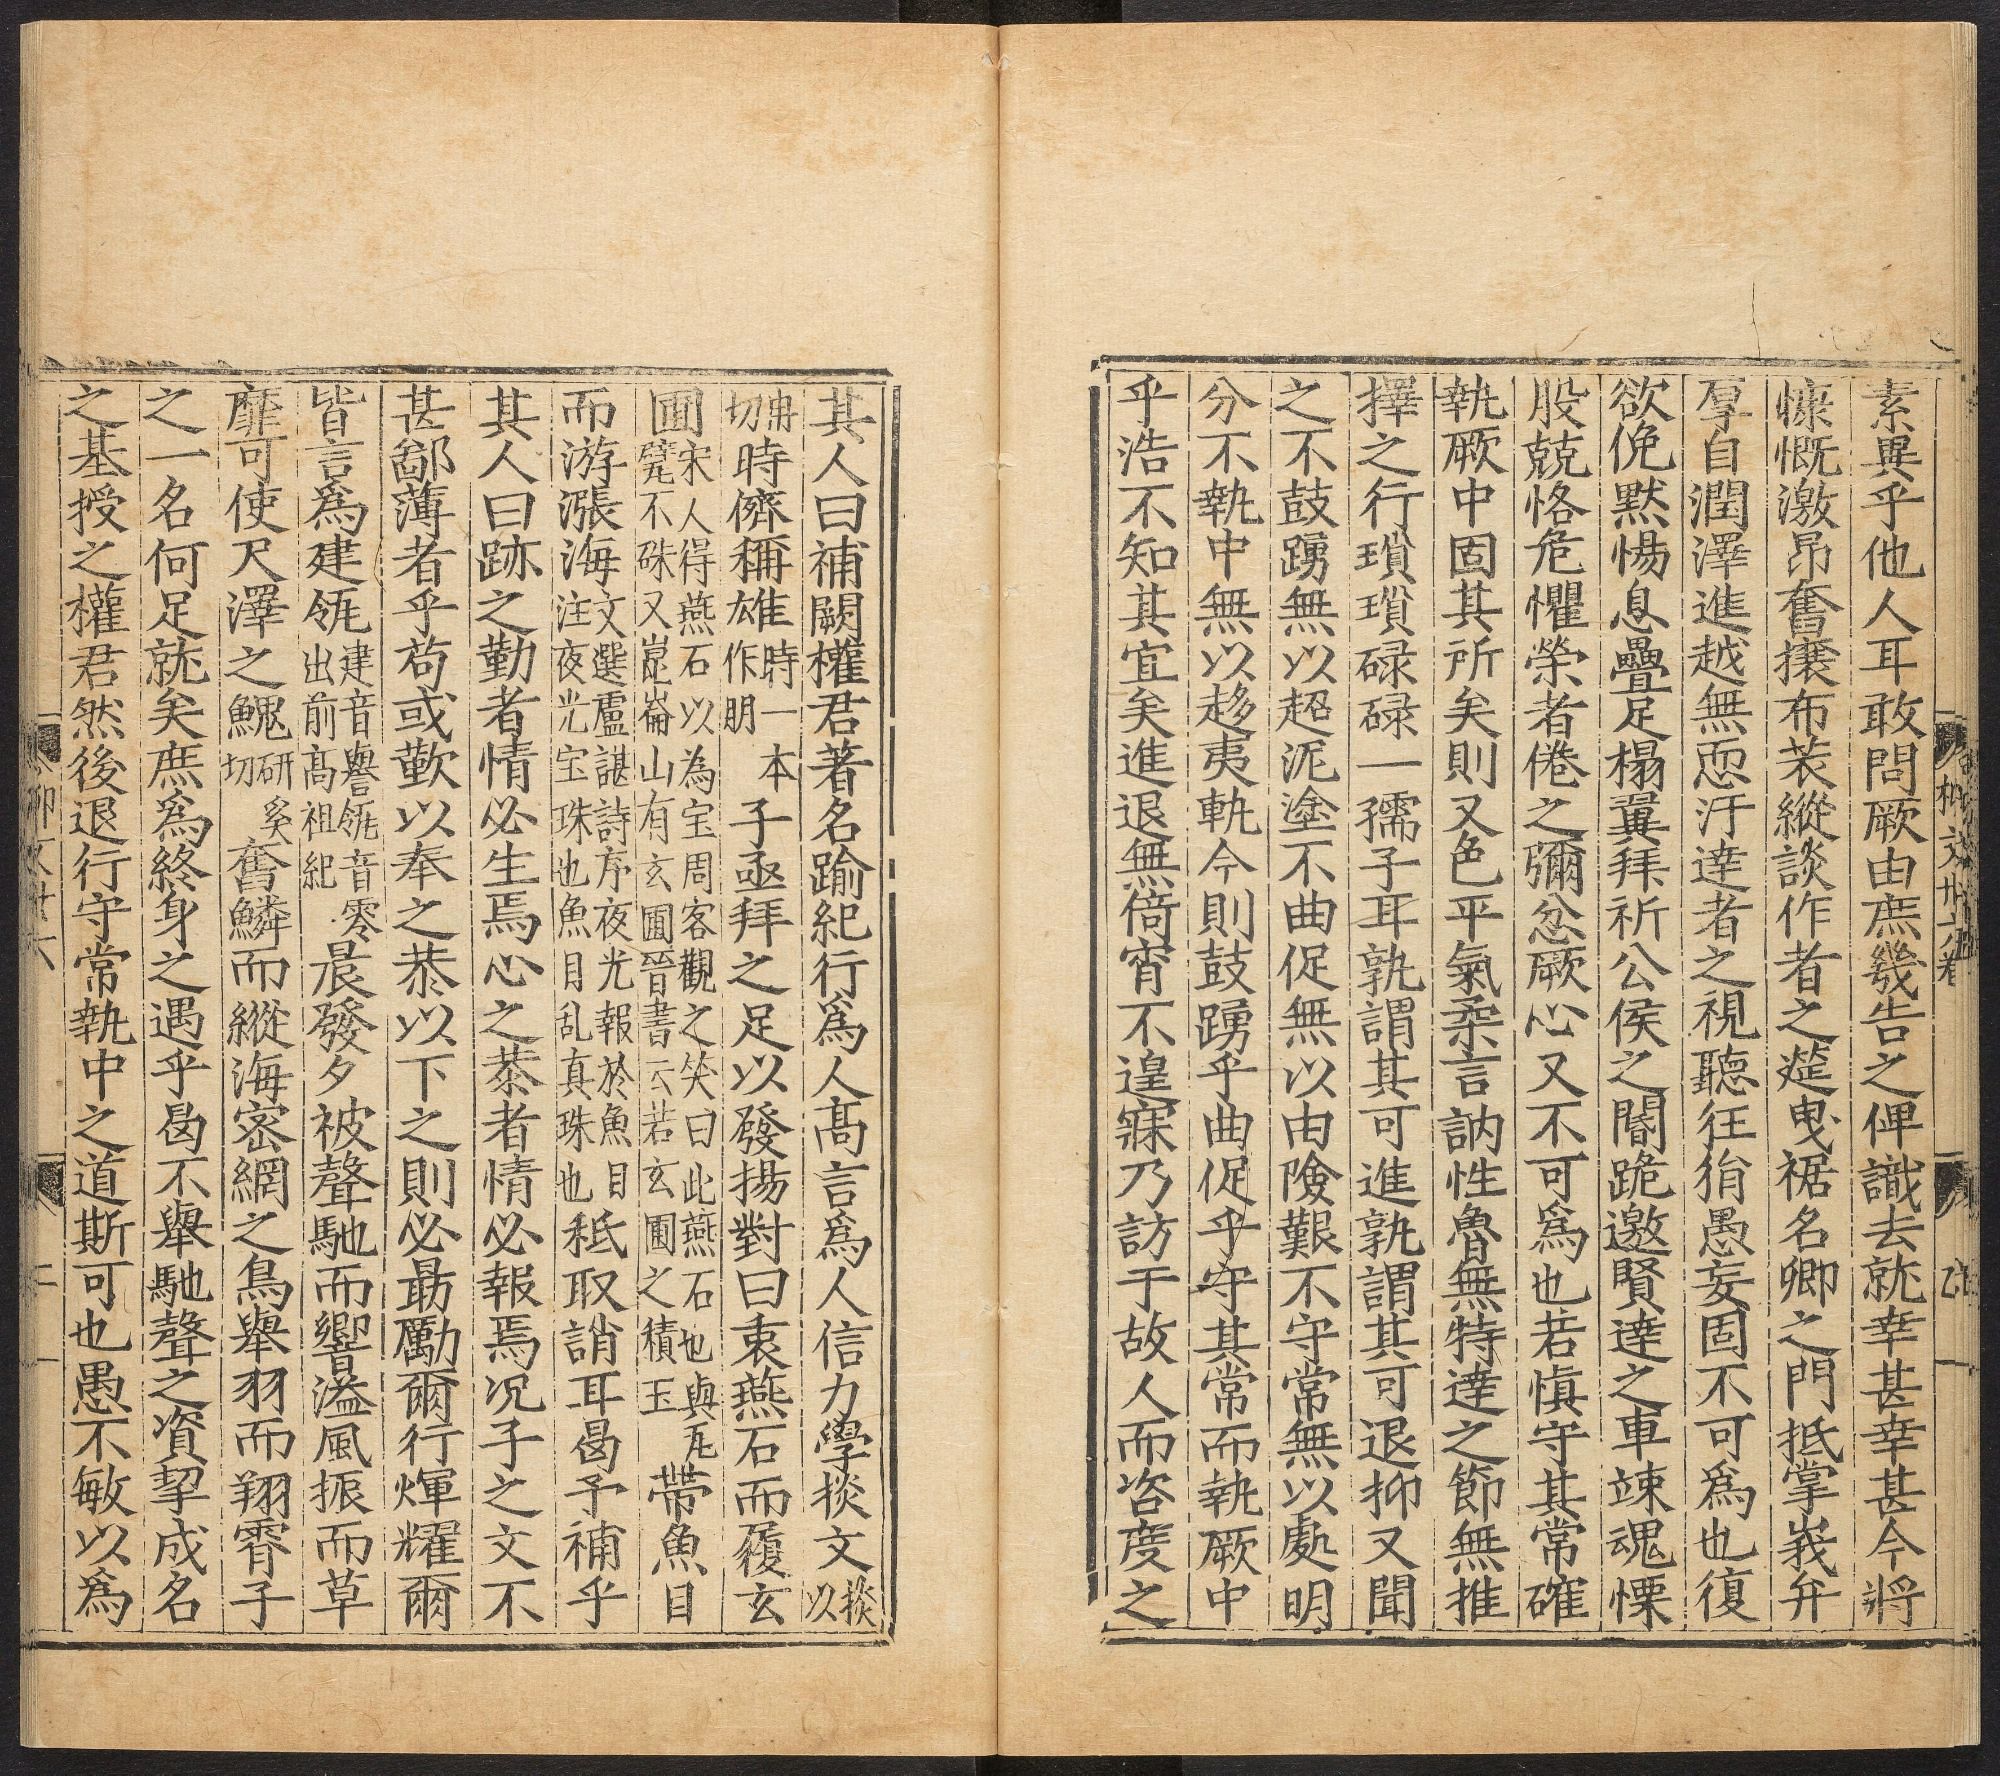 素異乎他人耳敢問厥由庶幾告之俾識去就幸甚幸甚今將
慷慨激昂奮攘布衣縱談作者之莚曳裾名卿之門抵掌峩弁
厚自潤澤進越無恧汙達者之視聽狂狷愚妄固不可爲也復
欲俛默惕息疊足榻翼拜祈公侯之閽跪邀賢達之車竦魂慄
股兢恪危懼榮者倦之彌忿厥心又不可爲也若慎守其常確
執厥中固其所矣則又色平氣柔言訥性魯無特達之節無推
擇之行瑣瑣碌碌一孺子耳孰謂其可進孰謂其可退抑又聞
之不鼓踴無以超泥塗不曲促無以由險艱不守常無以處明
分不執中無以趍夷軌今則鼓踴乎曲促乎守其常而執厥中
乎浩不知其宜矣進退無倚宵不遑寐乃訪于故人而咨度之
其人曰補闕權君著名踰紀行爲人髙言爲人信力學掞文掞以
冉切時儕稱雄時一本作朋子亟拜之足以發揚對曰衷燕石而履玄
圃宋人得燕石以為宝周客觀之笑曰此燕石也與瓦甓不殊又崑崙山有玄圃晉書云若玄圃之積玉帶魚目
而游漲海文選盧諶詩序夜光報於魚目注夜光宝珠也魚目乱真珠也秪取誚耳曷予補乎
其人曰跡之勤者情必生焉心之恭者情必報焉况子之文不
甚鄙薄者乎苟或歡以奉之恭以下之則必勗勵爾行輝耀爾
皆言爲建瓴建音謇瓴音零出前髙祖紀晨發夕被聲馳而響溢風振而草
靡可使尺澤之鯢研奚切奮鱗而縱海密網之鳥舉羽而翔霄子
之一名何足就矣庶爲終身之遇乎曷不舉馳聲之資挈成名
之基授之權君然後退行守常執中之道斯可也愚不敏以爲